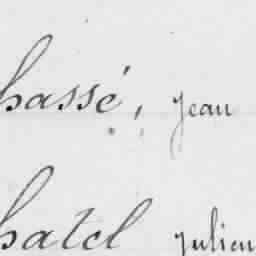 hassé, Jean
hatel Julien